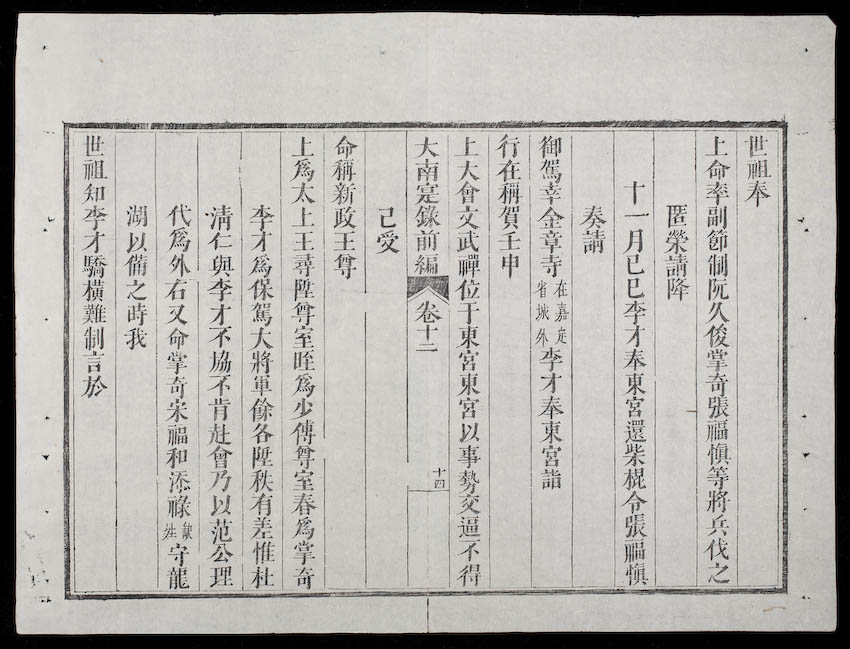 世祖奉
上命率副節制阮久俊掌奇張福愼等將兵伐之
匿榮請降
十一月己巳李才奉東宮還柴棍令張福愼
奏請
御駕幸金章寺在嘉定省城外李才奉東宮詣
行在稱賀壬申
上大會文武禪位于東宮東宮以事勢交逼不得
大南寔錄前編 卷十二 十四
己受
命稱新政王尊
上爲太上王尋陞尊室晊爲少傅尊室春爲掌奇
李才爲保駕大將軍餘各陞秩有差惟杜
淸仁與李才不協不肯赴會乃以范公理
代爲外右又命掌奇宋福和添祿缺姓守龍
湖以備之時我
世祖知李才驕橫難制言於